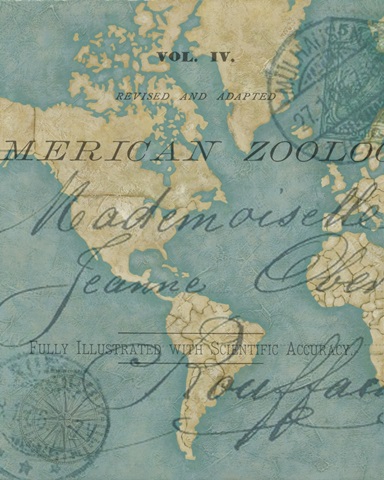 VOL. IV.
REVISED AND ADAPTED
MERICAN ZOOLO
Mademoiselle
Jeanne Ober
FULLY ILLUSTRATED WITH SCIENTIFIC ACCURACY.